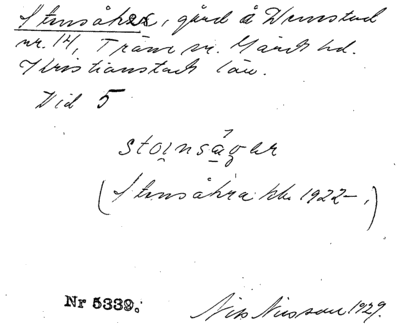 Stensåker, gård å Wunstad
nr. 14, Träne sn. Gärds hd.
Kristianstads län.
Vid 5
stoinságar
(Stensåkra kbr 1922–,)
Nr 5339.
Nils Nilsson 1929.